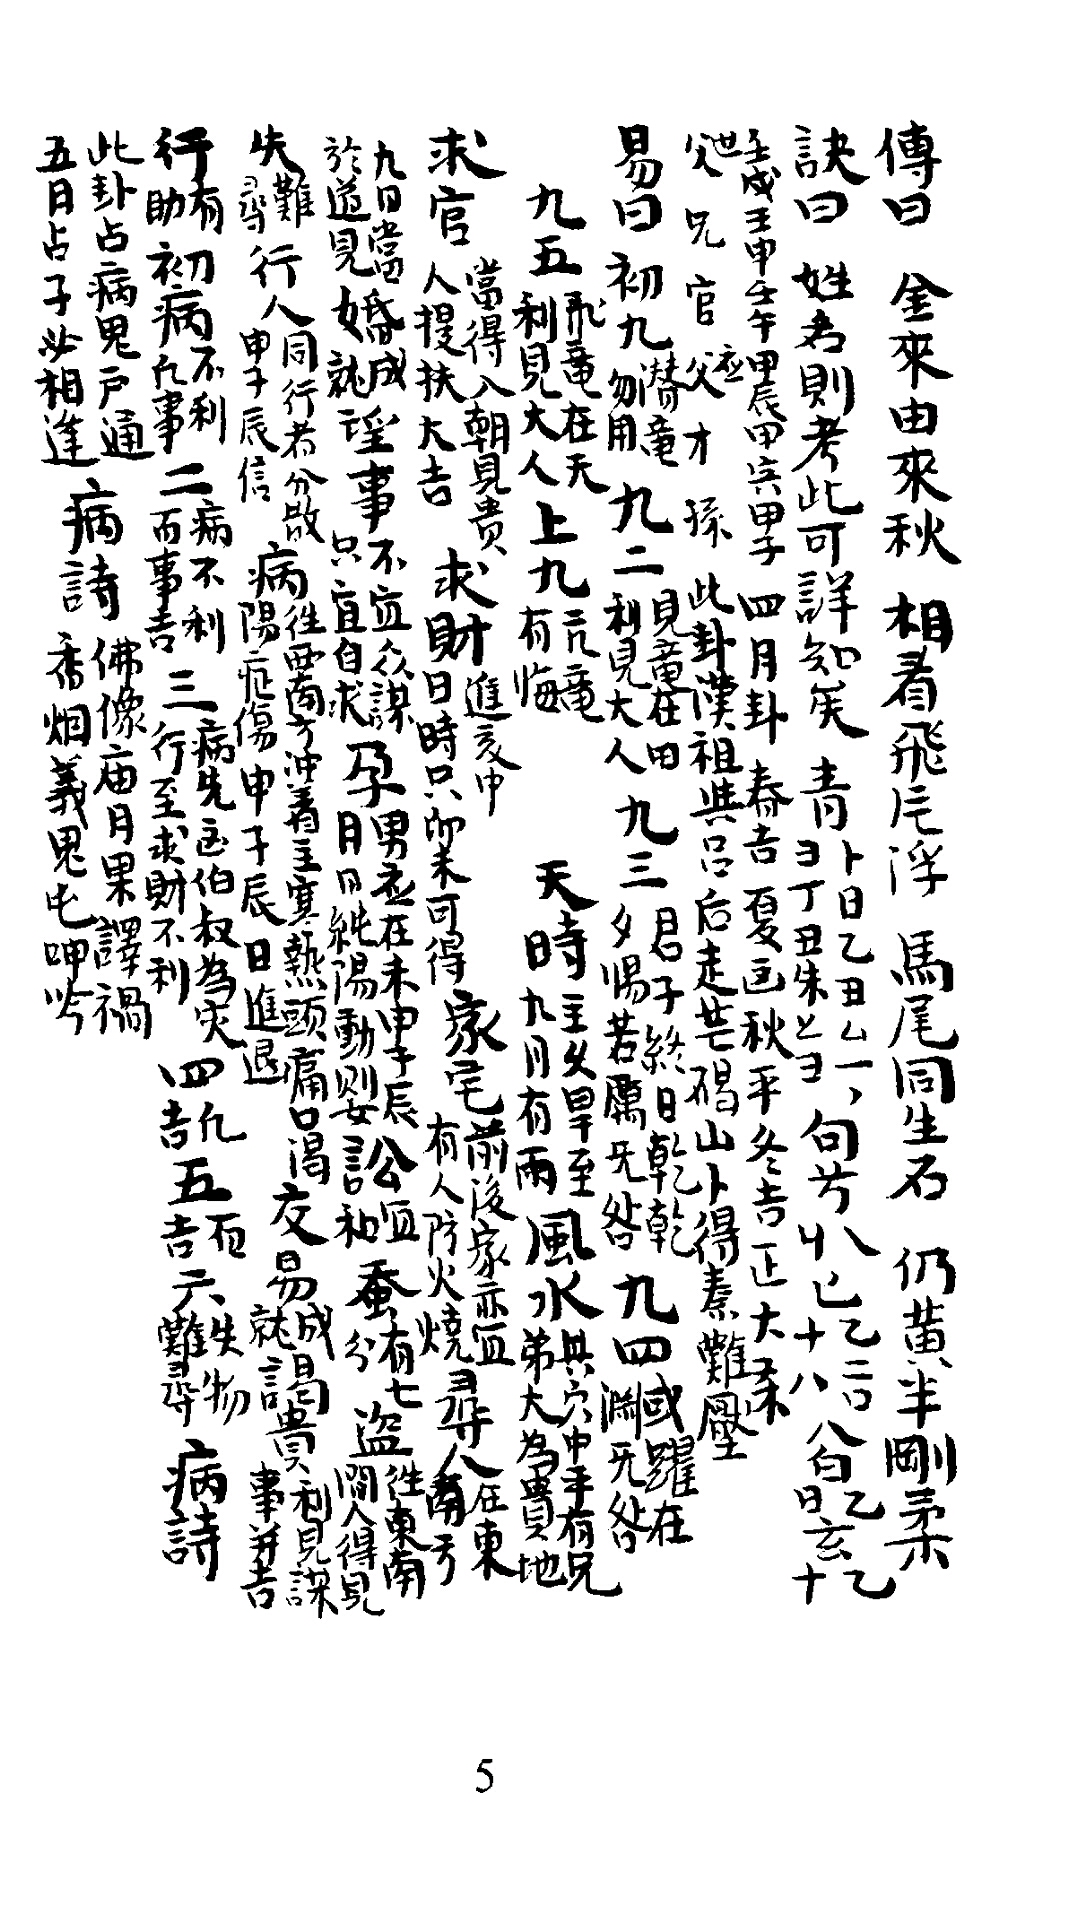 傳曰 金來由來秋 相看飛片浮 馬尾同生石 仍黃半剛柔
訣曰 姓者則考此可詳知矣 青 卜日乙丑
壬戌壬申壬午甲辰甲寅甲子 四月卦 春吉夏凶秋平冬吉正大柔
世父兄官應父才孫 此卦漢祖與呂后走芒碭山卜得秦難壓
易曰 初九 潛竜勿用 九二 見竜在田利見大人 九三 君子終日乾乾夕惕若厲旡咎 九四 或躍在淵旡咎
九五 飛竜在天利見大人 上九 亢竜有悔 天時 主久旱至九月有雨 風水 其穴中平有兄弟大為貴地
求官 當得入朝見貴人提扶大吉 求財 進亥申日時只卯未可得 家宅 前後家亦宜有人防火燒 尋人 在東南方
九日當於道見 婚 成就 謡事 不宜众謀只宜自求 孕 男在未申子辰月日純陽動則女 訟 公宜和 蚕 有七分 盗 往東南間人得見
失 難尋 行人 同行者分散申子辰信 病 往西南方冲着主寒熱頭痛口渴陽症傷申子辰日進退 交易 成就 謁貴 利見謀事并吉
行 有助 初 病不利凡事 二 病不利而事吉 三 病先凶伯叔為灾行至求財不利 四 凡吉 五 而吉 六 失物難尋 病詩
此卦占病鬼戶通 五日占子必相逢 病詩 佛像庙月果譯禍 香烟義鬼屯呻吟
5